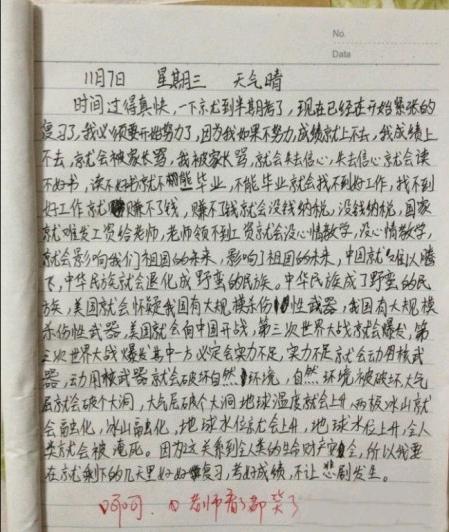 No.
Date
11月7日 星期三 天气晴
时间过得真快,一下京尤到半期考了,现在已经在开始紧张的
复习了,我必须要开始努力了,因为我如果不努力,成绩就上不去,我成绩上
不去,就会被家长骂,我被家长骂,就会失去信心,失去信心就会读
不好书,读不好书就不能毕业,不能毕业就会找不到好工作,找不到
好工作就赚不了钱,赚不了钱就会没钱纳税,没钱纳税,国家
就难发工资给老师,老师领不到工资就会没心情教学,没心情教学,
就会影响我们祖国的未来,影响了祖国的未来,中国就难以腾
飞,中华民族就会退化成野蛮的民族。中华民族成了野蛮的民
族,美国就会怀疑我国有大规模杀伤性武器,我国有大规模
杀伤性武器,美国就会向中国开战,第三次世界大战就会爆发,第
三次世界大战爆发其中一方必定会实力不足,实力不足就会动用核武
器,动用核武器就会破坏自然环境,自然环境被破坏,大气
层就会破个大洞,大气层破个大洞地球温度就会上升,两极冰山就
会融化,冰山融化,地球水位就会上升,地球水位上升,全人
类就会被淹死。因为这关系到全人类的生命财产安全,所以我要
在就剩下的几天里好好复习,考好成绩,不让悲剧发生。
呵呵,老师看了都笑了